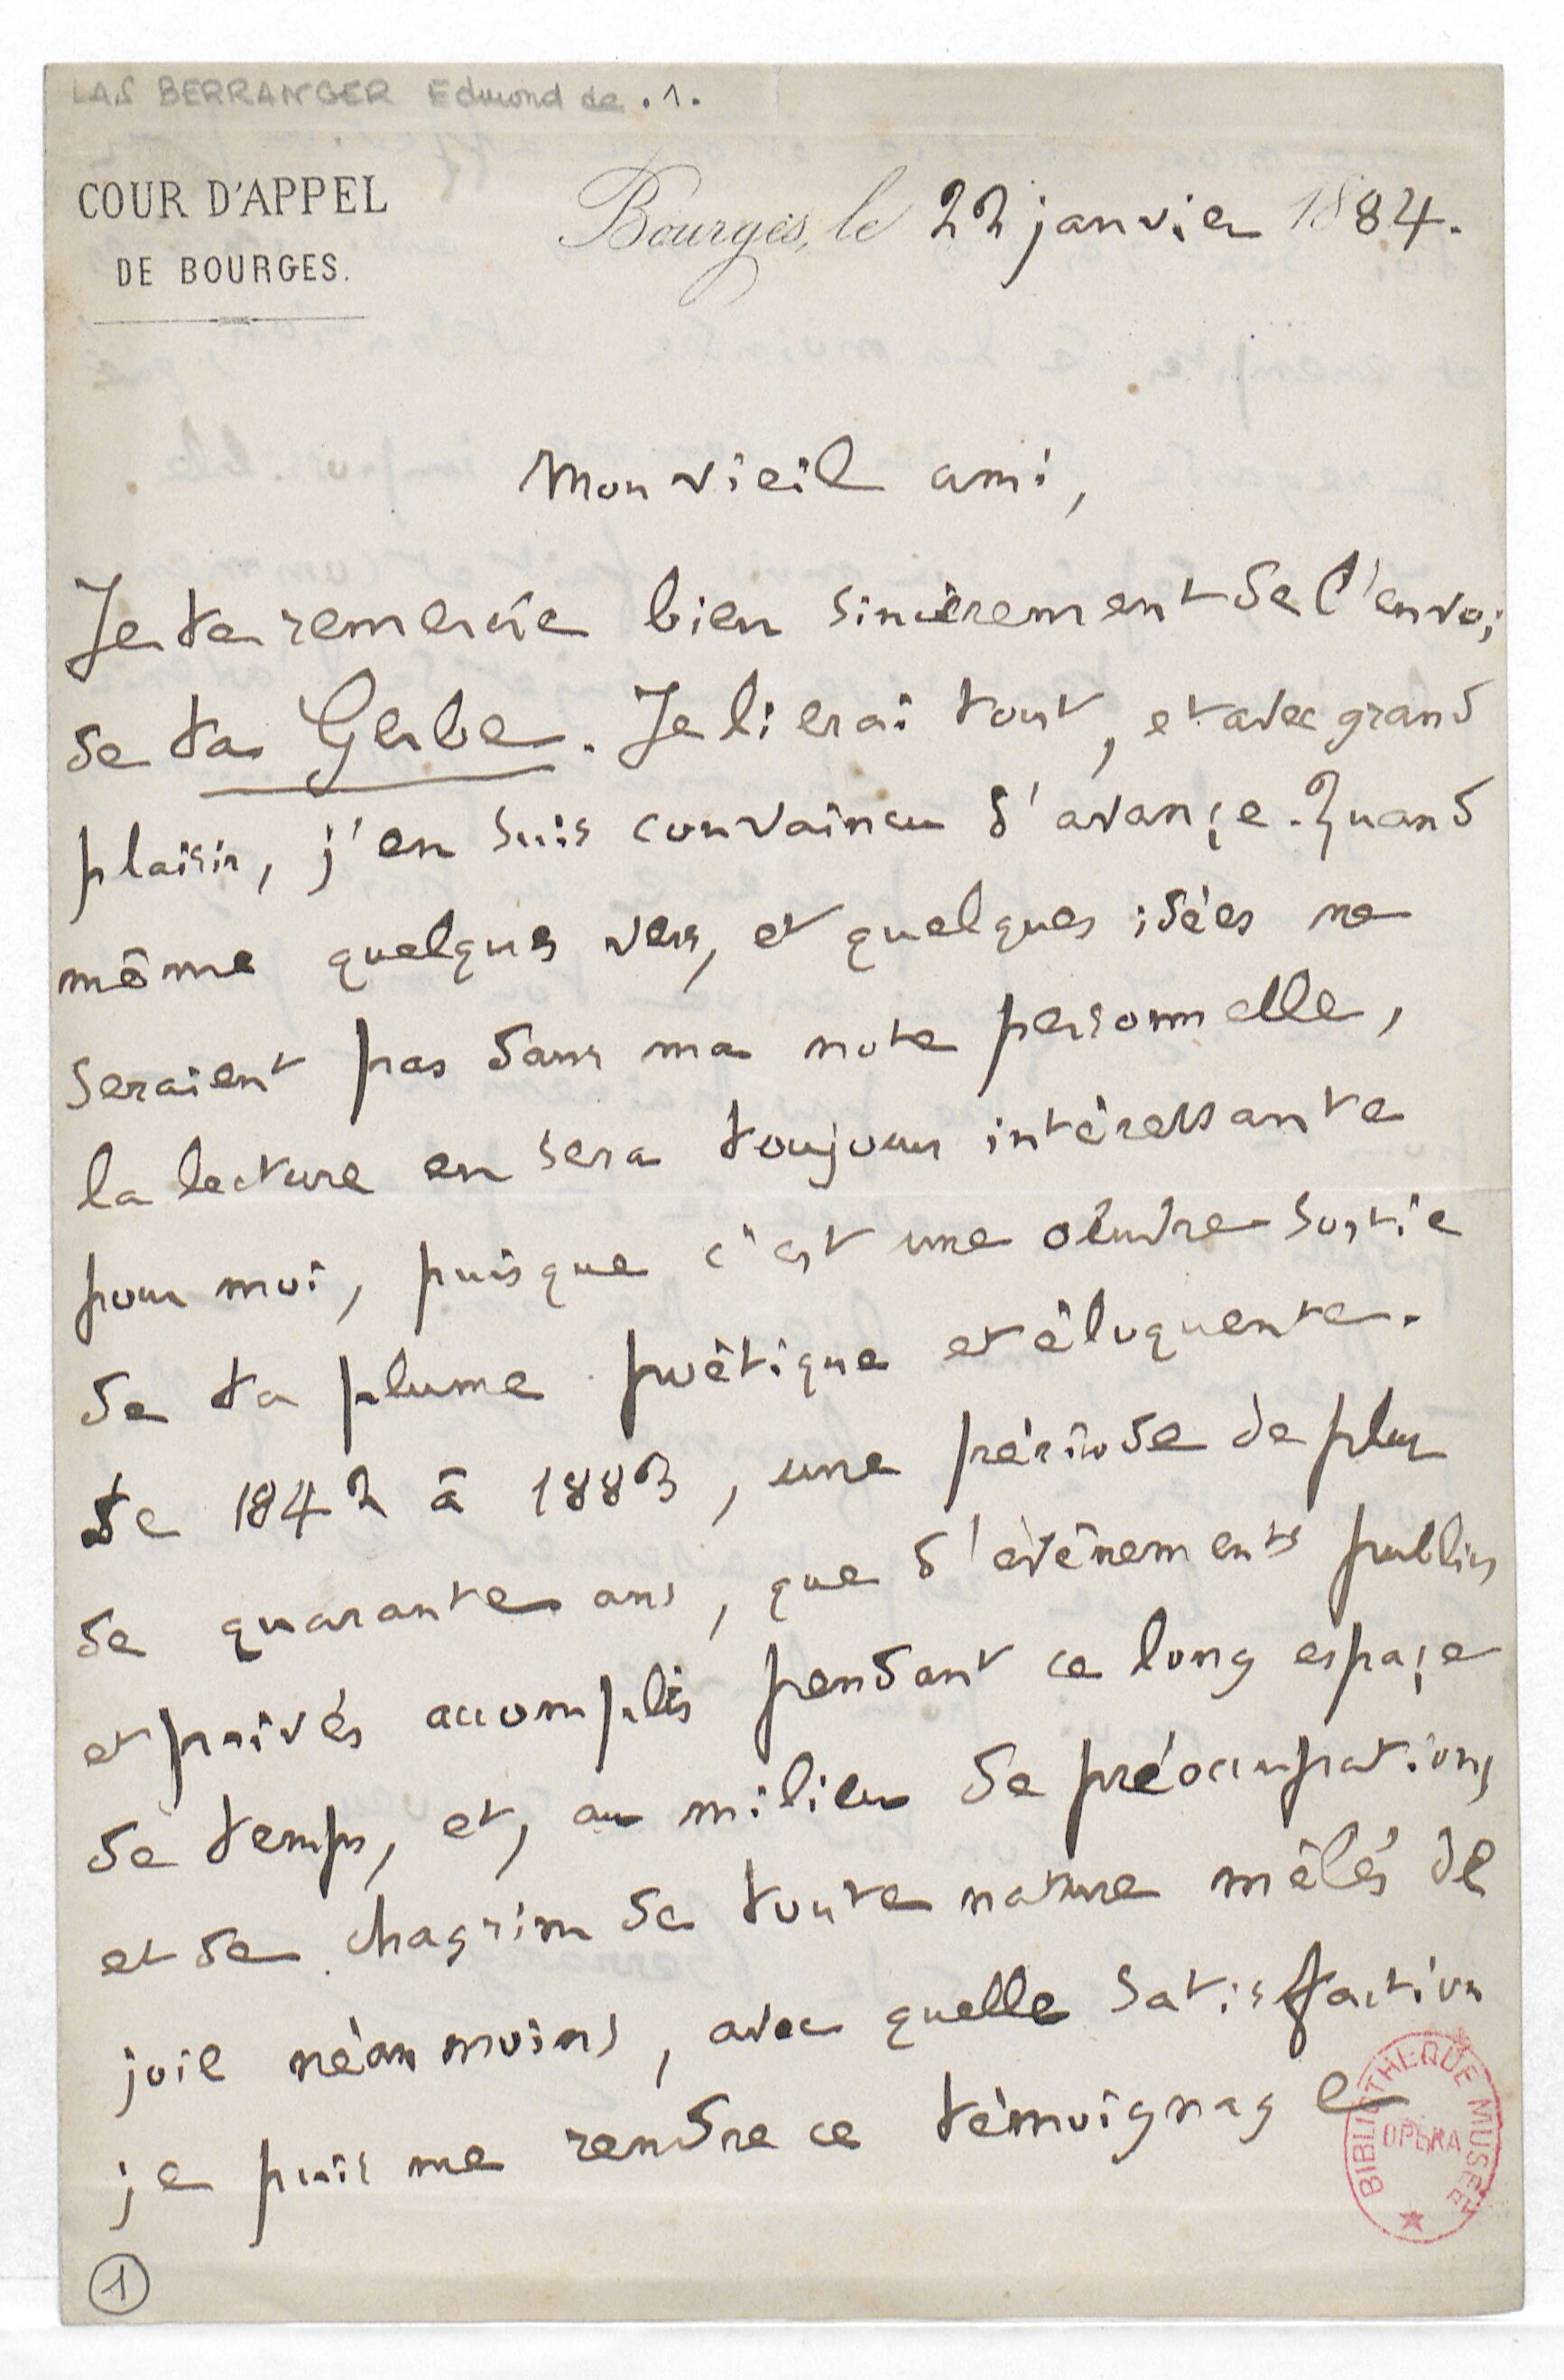 LAS BERRANGER Edmond de . 1 .
COUR D'APPEL
DE BOURGES.
Bourges, le 22 janvier 1884.
Mon vieil ami,
Je te remercie bien sincèrement de l'envoi
de ta Gerbe. Je lierai tout, et avec grand
plaisir, j'en suis convaincu d'avançe. Quand
même quelques vers, et quelques idées ne
seraient pas dans ma note personnelle,
la lecture en sera toujours intéressante
pour moi, puisque c'est une œuvre sortie
de ta plume poëtique et éloquente.
de 1842 à 1883, une période de plus
de quarante ans, que d'événements publics
et privés accomplis pendant ce long espaçe
de temps, et, au milieu de préoccupations
et de chagrins de toute nature mêlés de
joie néanmoins, avec quelle satisfaction
je puis me rendre ce témoignage
BIBLIOTHEQUE MUSEE
OPERA
1